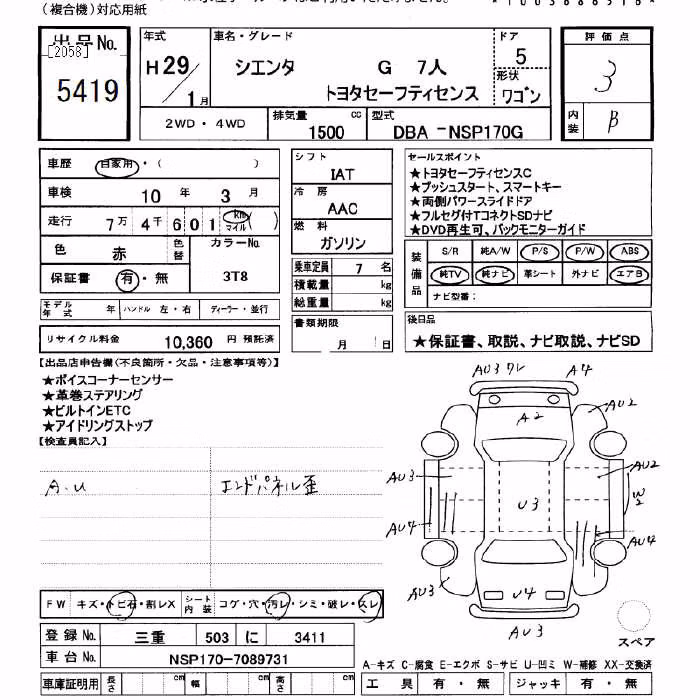 (複合機)対応用紙
出品No.
[2058]
5419
年式
H29/1月
車名・グレード
シエンタ G 7人
トヨタセーフティセンス
ドア
5
形状
ワゴン
評価点
3
内装
B
2WD・4WD
排気量
1500 cc
型式
DBA-NSP170G
車歴 自家用・( )
車検 10年 3月
走行 7万4千601 km マイル ( )
色 赤
色替
カラーNo. 3T8
保証書 有・無
モデル年式 年 ハンドル 左・右 ディーラー・並行
リサイクル料金 10,360 円 預託済
シフト
IAT
冷房
AAC
燃料
ガソリン
乗車定員 7 名
積載量 kg
総重量 kg
書類期限
月 日
セールスポイント
★トヨタセーフティセンスC
★プッシュスタート、スマートキー
★両側パワースライドドア
★フルセグ付TコネクトSDナビ
★DVD再生可、バックモニターガイド
装備品
S/R 純A/W P/S P/W ABS
純TV 純ナビ 革シート 外ナビ エアB
ナビ型番:
後日品
★保証書、取説、ナビ取説、ナビSD
【出品店申告欄(不良箇所・欠品・注意事項等)】
★ボイスコーナーセンサー
★革巻ステアリング
★ビルトインETC
★アイドリングストップ
【検査員記入】
A・U エンドパネル歪
AU3 ワレ
A4
A2
AU2
AU3
AU2
U3
W2
AU4
AU4
AU3
U4
AU3
スペア
FW キズ・トビ石・割レX シート内装 コゲ・穴・汚レ・シミ・破レ・スレ
登録No. 三重 503 に 3411
車台No. NSP170-7089731
車庫証明用 長さ cm 幅 cm 高さ cm
A-キズ C-腐食 E-エクボ S-サビ U-凹ミ W-補修 XX-交換済
工具 有・無 ジャッキ 有・無